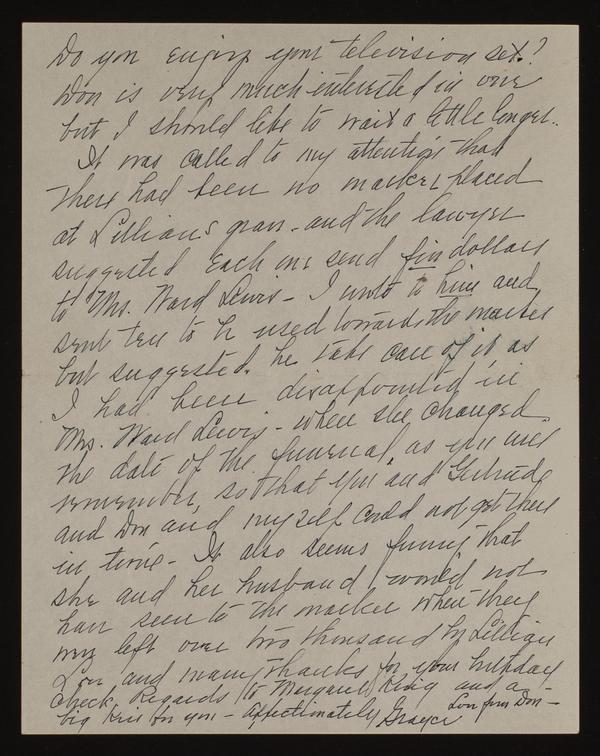 Do you enjoy your television set?
Don is very much interested in one
but I should like to wait a little longer..
It was called to my attention that
there had been no marker placed
at Lillian's grave - and the lawyer
suggested each one send five dollars
to Mrs. Ward Lewis - I wrote to him and
sent ten to be used towards the marker
but suggested he take care of it as
I had been disappointed in
Mrs. Ward Lewis - when she changed
the date of the funeral, as you will
remember, so that you and Gertrude
and Don and myself could not get there
in time - It also seems funny that
she and her husband would not
have seen to the marker when they
were left over two thousand by Lillian
Love and many thanks for your birthday
check. Regards to Margaret King and a
big kiss for you - Affectionately Grayce
Love from Don -